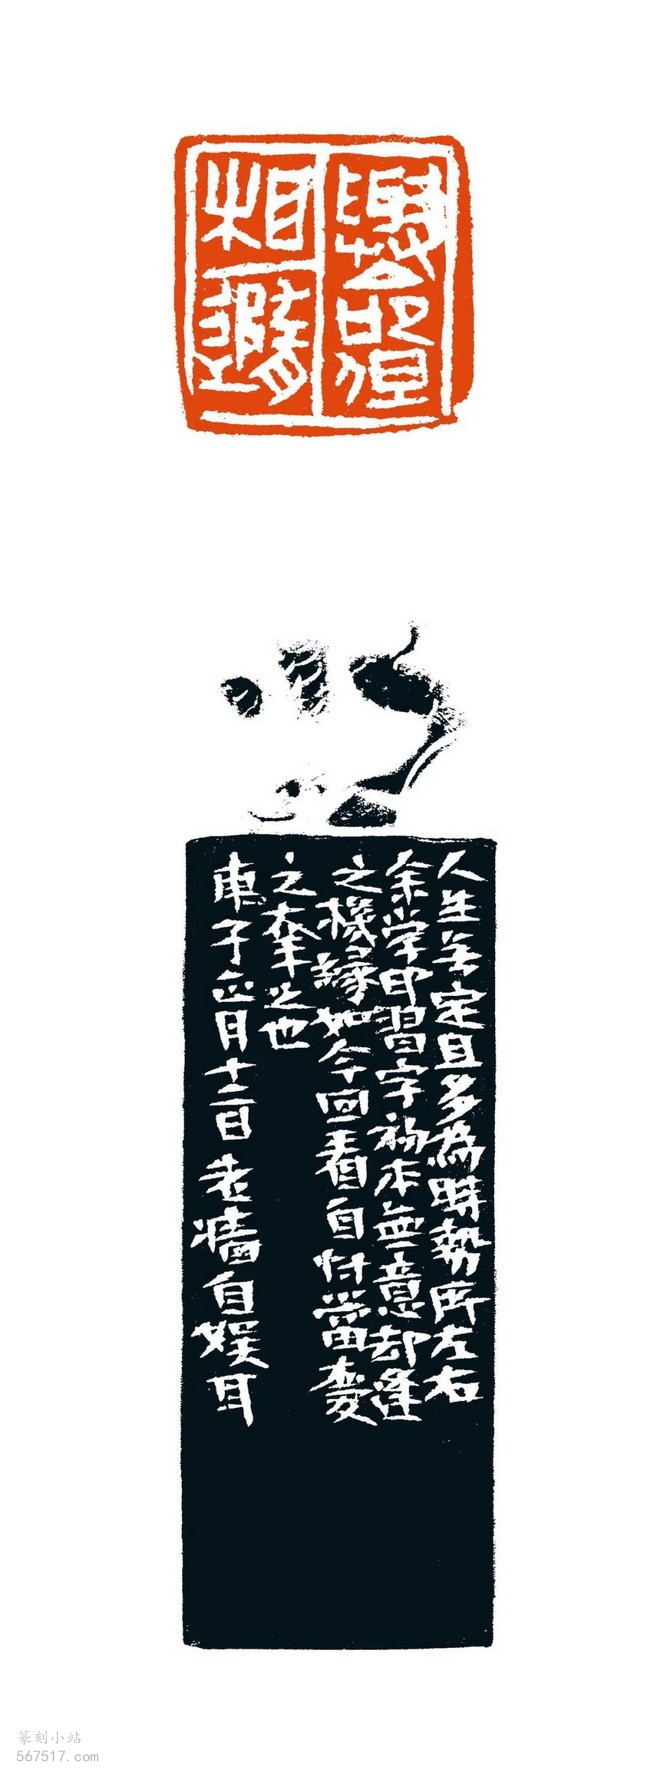 相
人生無定且多為時勢所左右
余學印習字初本無意却逢
之機緣如今回看自忖當愛
之奉之也
庚子正月十二日老牆自娛耳
篆刻小站
567517.com